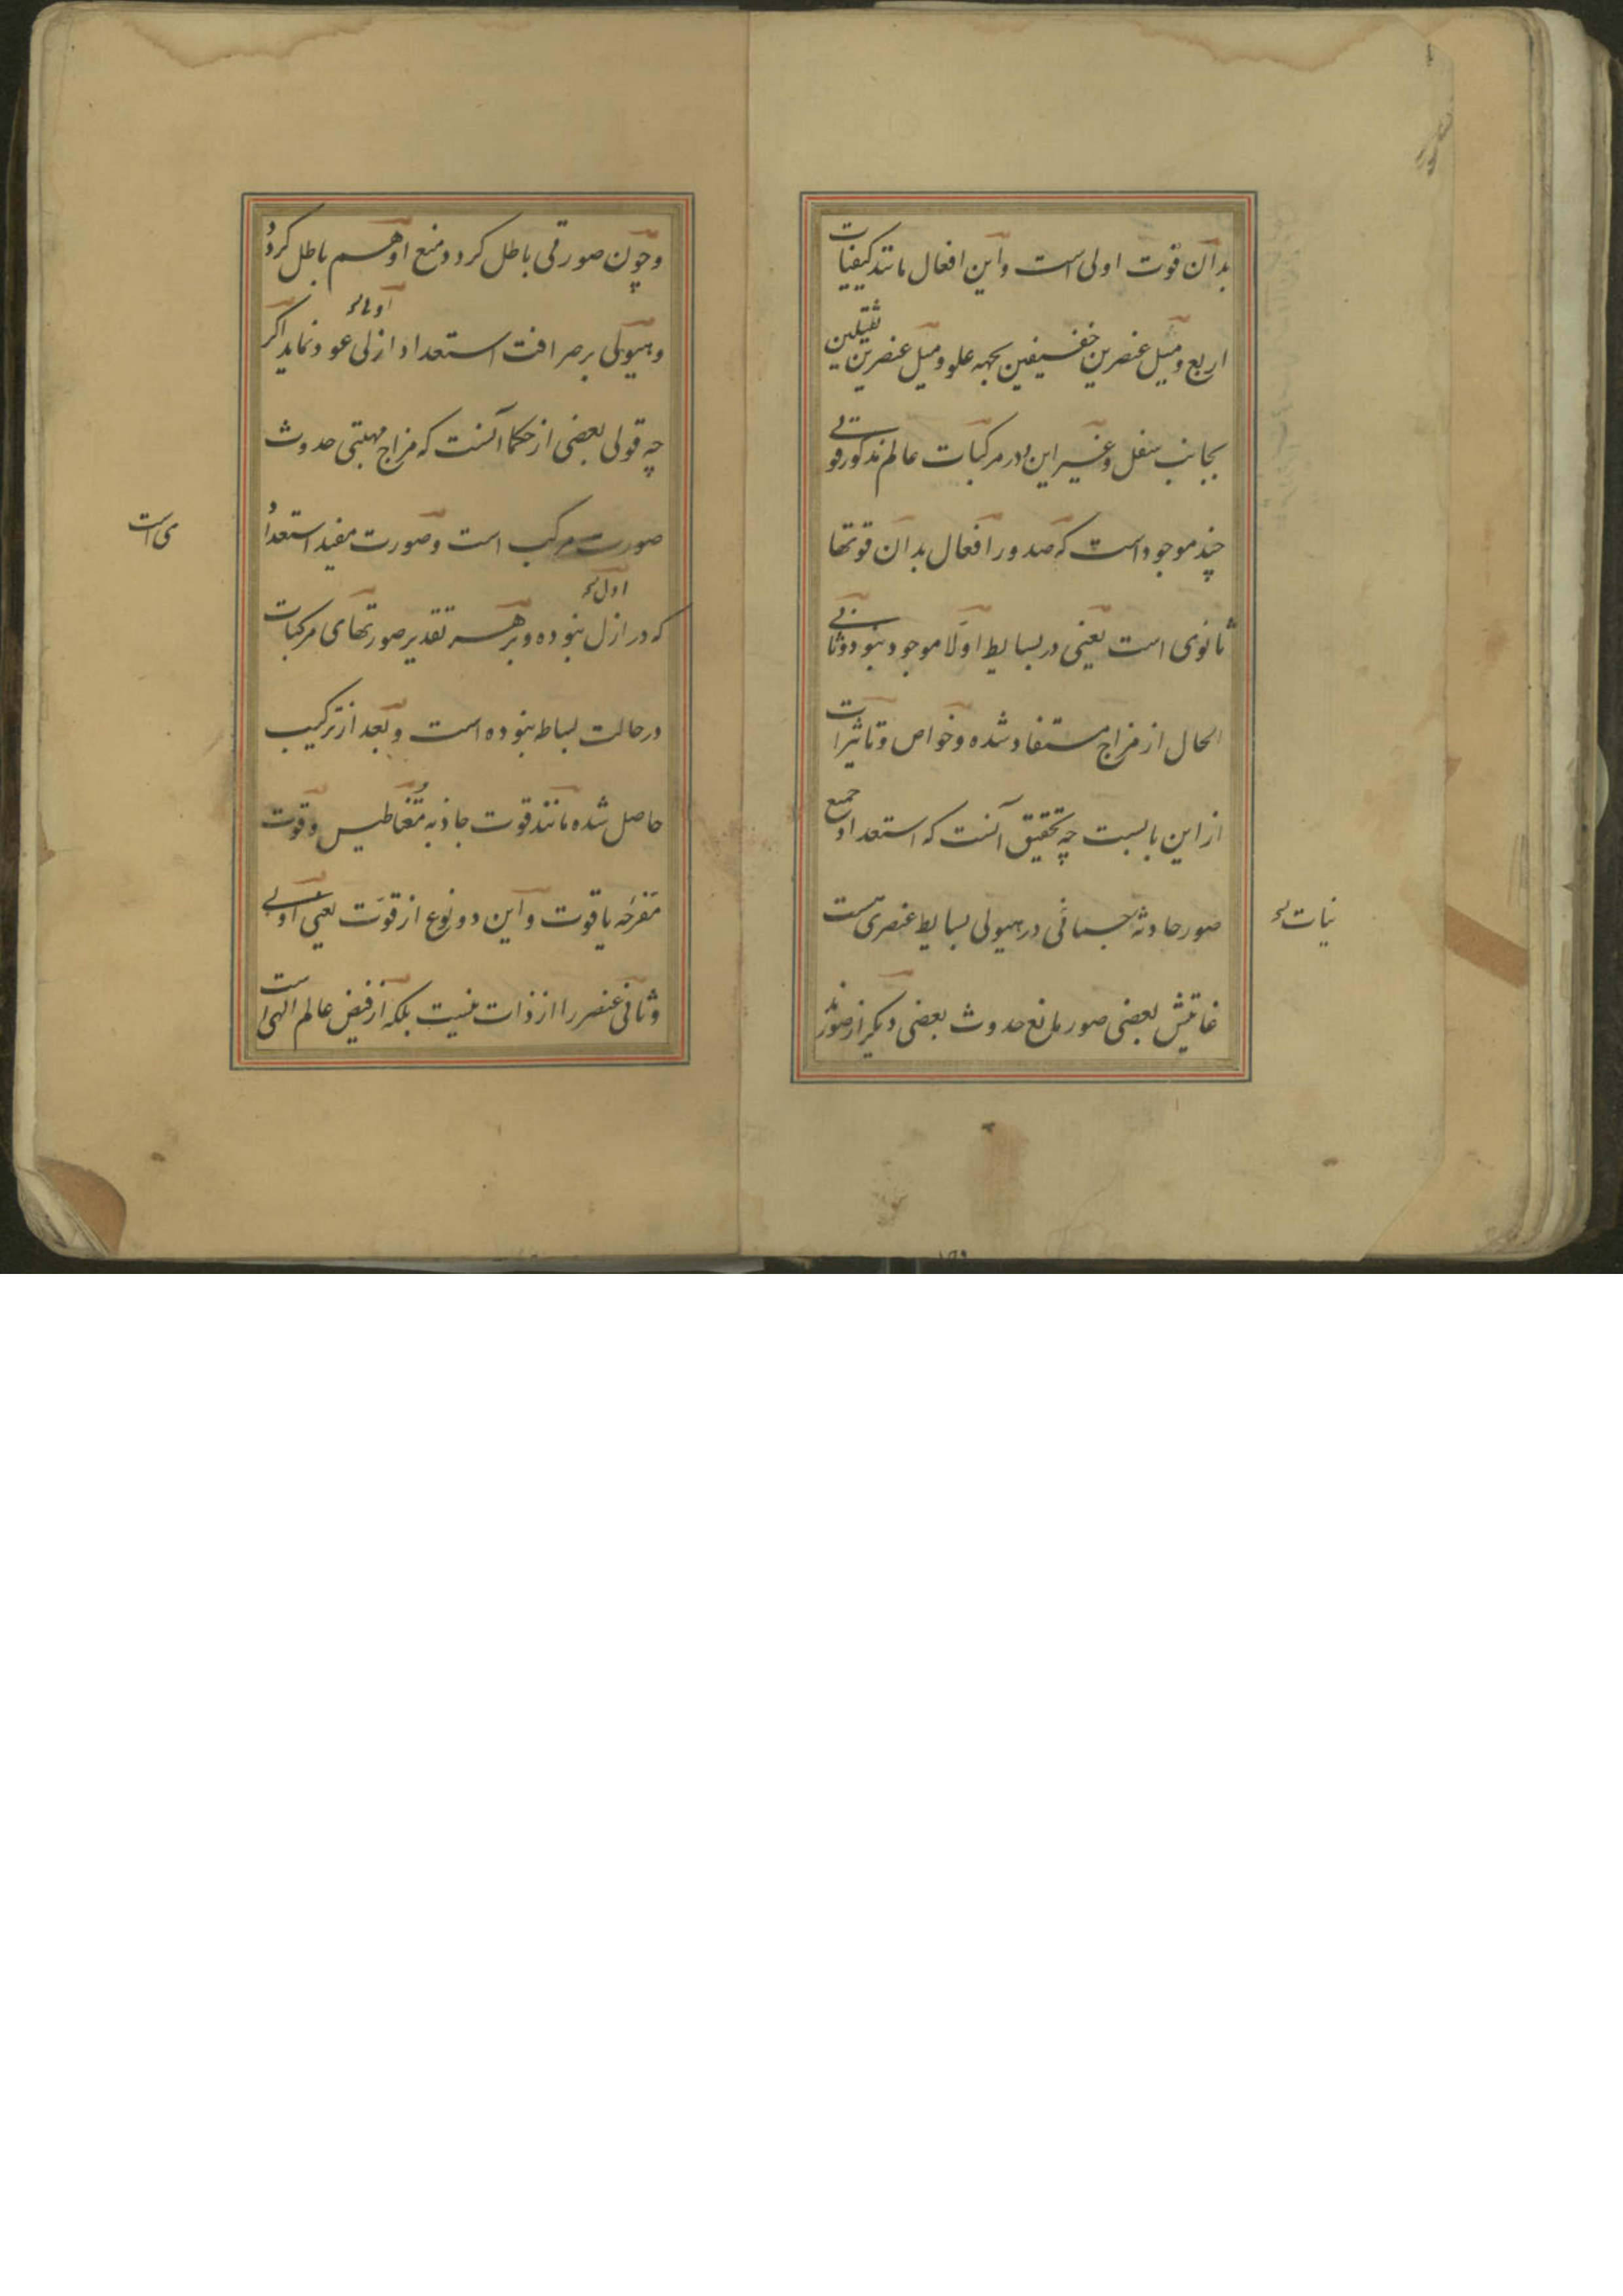 بدان قوت اولی است و این افعال مانند کیفیات
اربع و میل عنصرین خفیفین بجهه علو و میل عنصرین ثقیلین
بجانب سفل و غیر این و در مرکبات عالم مذکور قوتی
چند موجود است که صدور افعال بدان قوتها
ثانوی است یعنی در بسایط اولا موجود نبود و ثانی
الحال از مزاج مستفاد شده و خواص و تاثیرات
از این بابست چه تحقیق آنست که استعداد جمیع
صور حادثه جسمانی در هیولی بسایط عنصری هست
نبات
غایتش بعضی صور مانع حدوث بعضی دیگر از صور شد
و چون صورتی باطل کردد منع او هم باطل کردد
و هیولی بر صرافت استعداد ازلی عود نماید اکر
چه قولی بعضی از حکما آنست که مزاج مهیئی حدوث
صورت مرکب است و صورت مفید استعداد
ی است
که در ازل نبوده و بر هر تقدیر صورتهای مرکبات
در حالت بساطت نبوده است و بعد از ترکیب
حاصل شده مانند قوت جاذبه مغناطیس و قوت
مفرحه یاقوت و این دو نوع از قوت یعنی اولی
و ثانی عنصر را از ذات نیست بلکه از فیض عالم الهی است